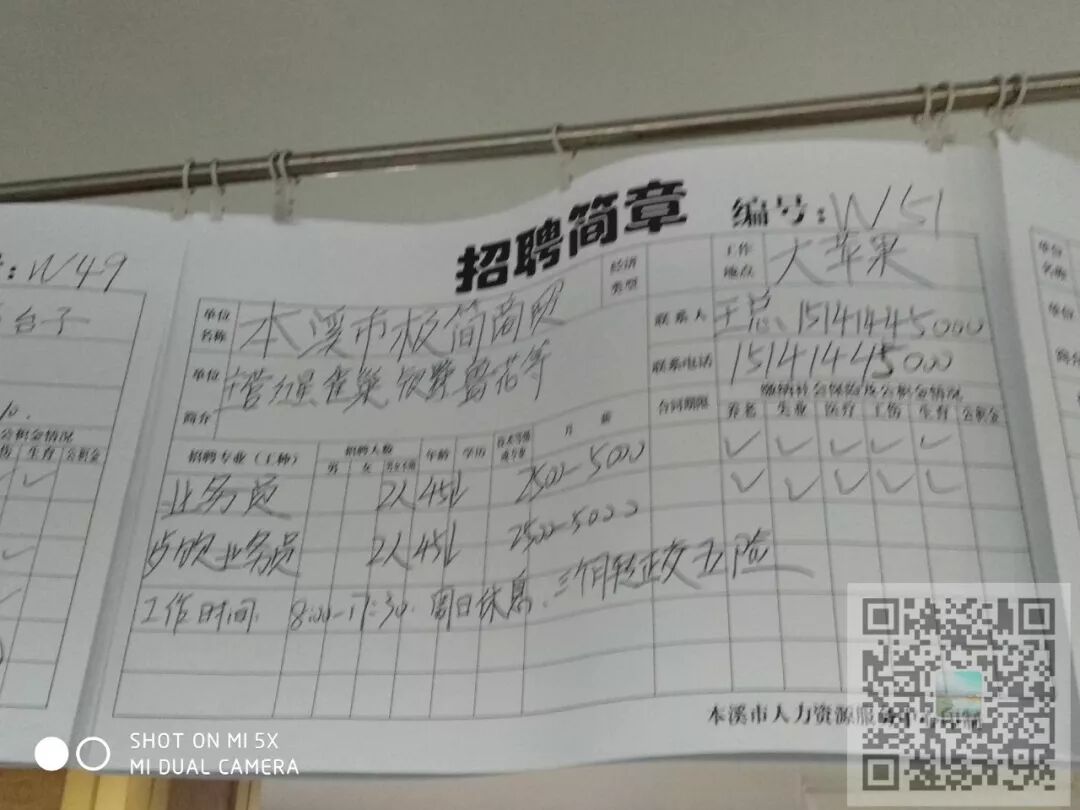 招聘简章
编号：W51
：W49
单位名称
本溪市板简商贸
经济类型
工作地点
大苹果
联系人
王总、15141445000
单位简介
雀巢
联系电话
15141445000
合同期限
缴纳社会保险及公积金情况
养老 失业 医疗 工伤 生育 公积金
招聘专业（工种）
招聘人数
男 女 男女不限
年龄 学历
月薪
业务员 2人 45以 2500-5000 ✓ ✓ ✓ ✓ ✓
业务员 2人 45以 2500-5000 ✓ ✓ ✓ ✓ ✓
工作时间 8:00-17:30. 周日休息、三个月转正交五险
本溪市人力资源服务中心印制
台子
公积金情况
伤 生育 公积金
单位名称
单位
SHOT ON MI 5X
MI DUAL CAMERA